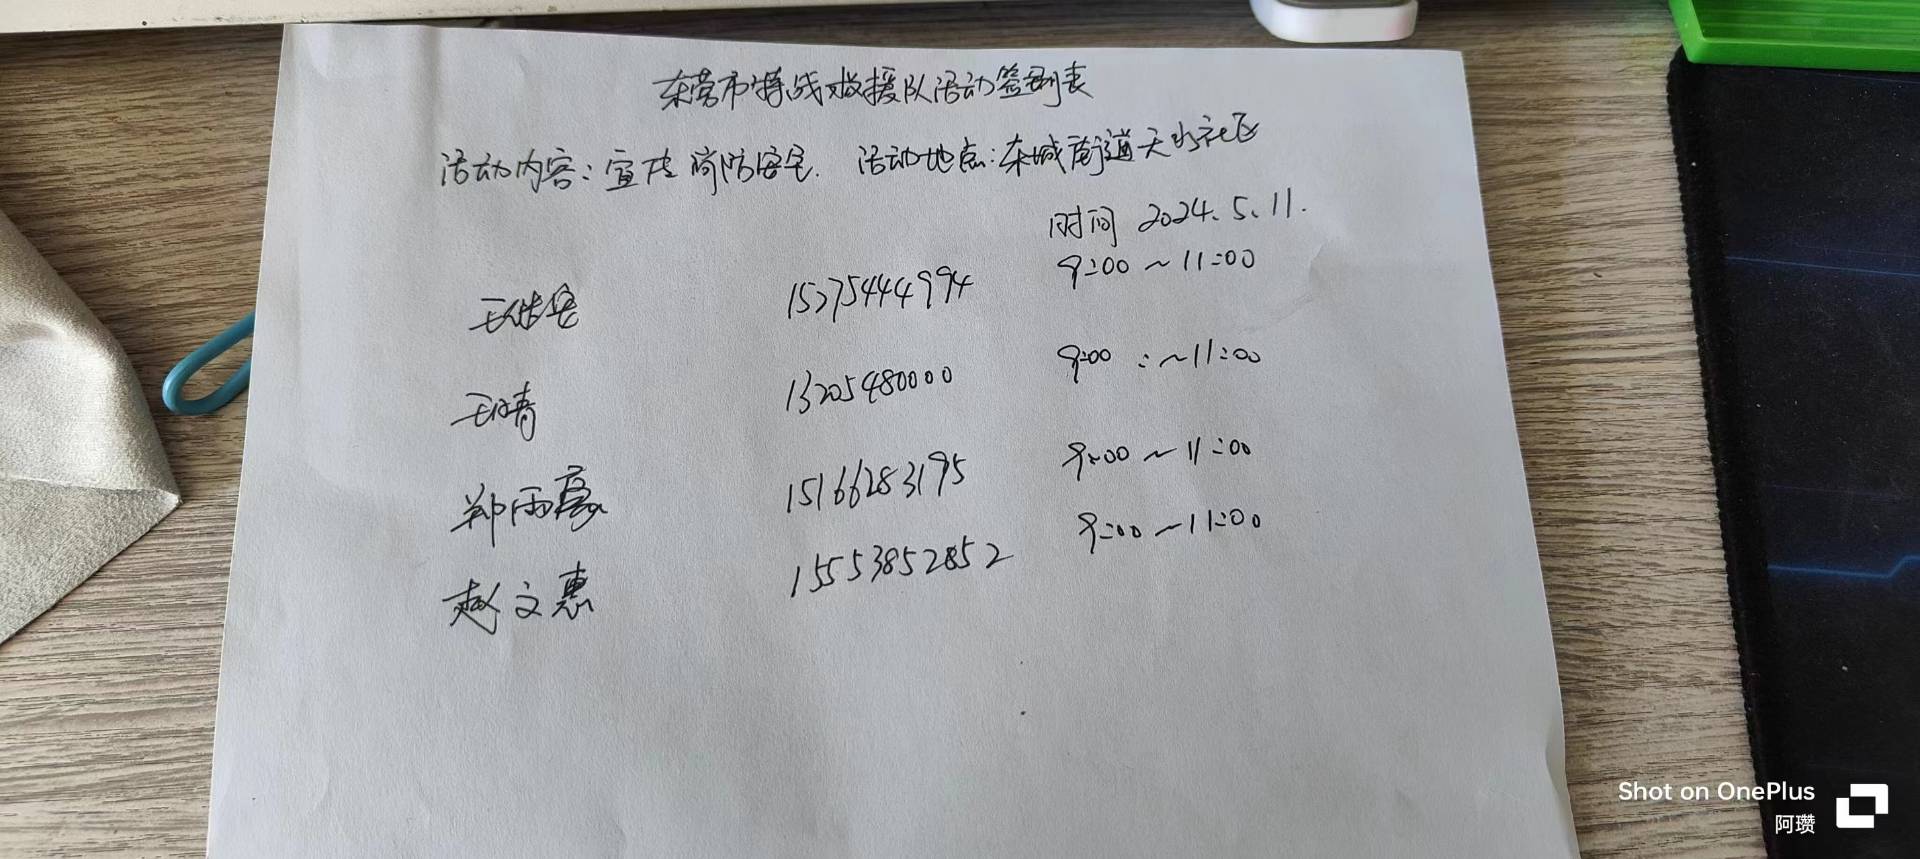 东营市特战救援队活动签到表
活动内容：宣传消防安全. 活动地点：东城街道天水社区
时间 2024.5.11.
15275444994 9:00～11:00
王晴 13205480000 9:00：～11:00
郑雨豪 15166283195 9:00～11:00
赵文惠 15553852852 9:00～11:00
Shot on OnePlus
阿瓒